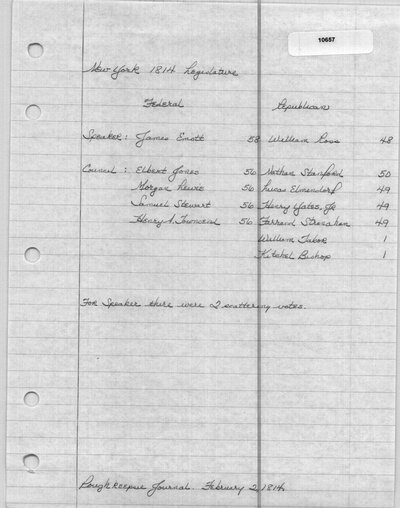 10657
New York 1814 Legislature
Federal Republican
Speaker: James Emott 58 William Ross 48
Council: Elbert Jones 56 Nathan Stanford 50
Morgan Lewis 56 Lucas Elmendorf 49
Samuel Stewart 56 Henry Yates, Jr 49
Henry A. Townsend 56 Farrand Stranahan 49
William Tabor 1
Kitchel Bishop 1
For Speaker there were 2 scattering votes.
Poughkeepsie Journal. February 2, 1814.